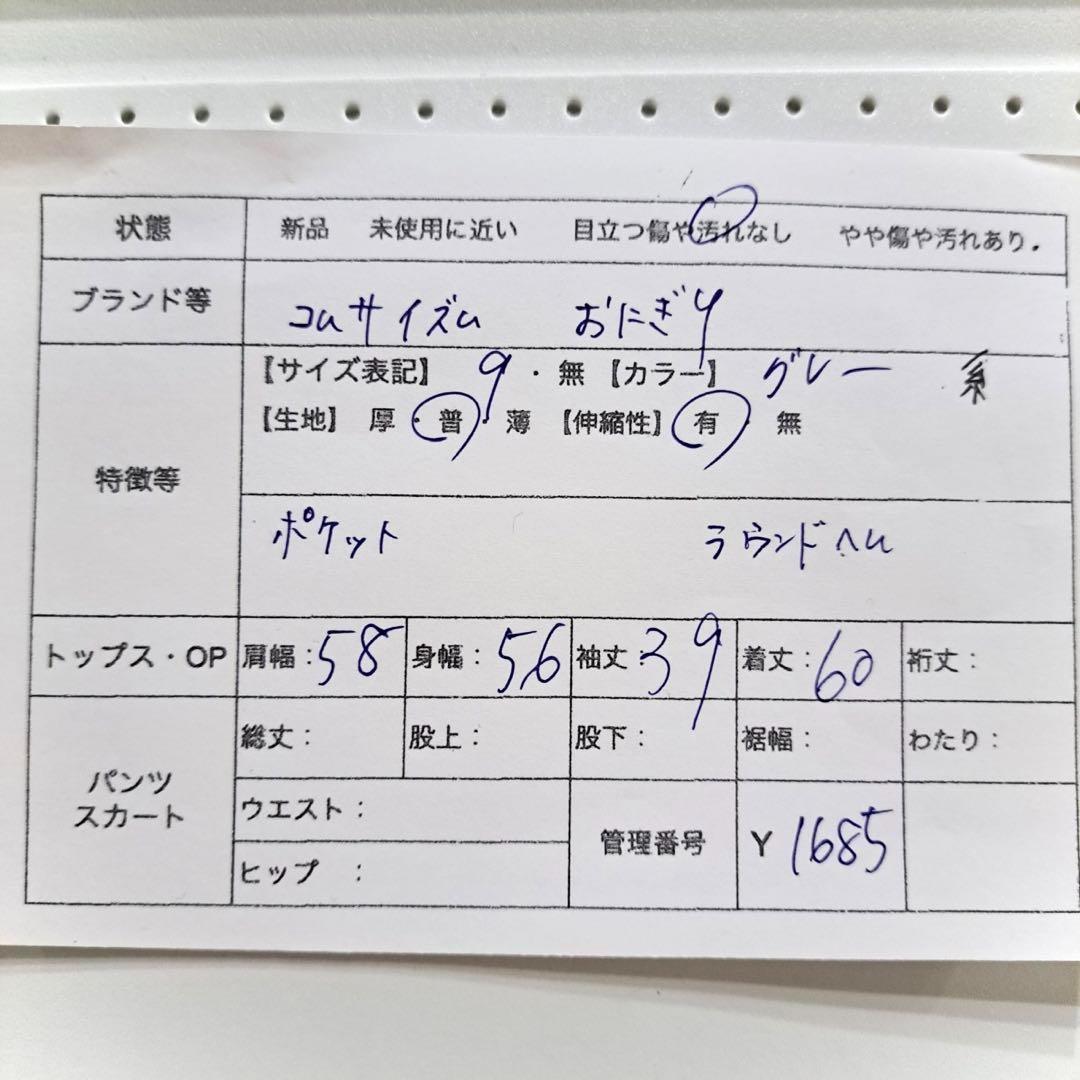 状態 新品 未使用に近い 目立つ傷や汚れなし やや傷や汚れあり.
ブランド等 コムサイズム おにぎり
【サイズ表記】 9 ・ 無 【カラー】 グレー 系
【生地】 厚 ・ 普 ・ 薄 【伸縮性】 有 ・ 無
特徴等
ポケット ラウンドヘム
トップス・OP 肩幅:58 身幅:56 袖丈:39 着丈:60 裄丈:
総丈: 股上: 股下: 裾幅: わたり:
パンツ
スカート
ウエスト:
管理番号 Y 1685
ヒップ :